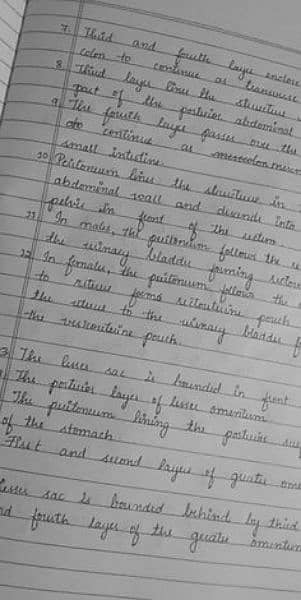 7. Third and fourth layer enclose
colon to continue as transverse
8. Third layer line the structure
part of the posterior abdominal
9. The fourth layer passes over the
to continue as mesocolon
small intestine.
10. Peritoneum line the structure in
abdominal wall and divends into
pelvis in front of the rectum.
11. In males, the peritonium follows the
the urinary bladder forming
12. In females, the peritoneum follows the
to uterus forms rectouterine pouch
the uterus to the urinary bladder
the vesicouterine pouch.
The lesser sac is bounded in front
The posterior layer of lesser omentum.
The peritoneum lining the posterior
of the stomach.
First and second layer of greater
lesser sac is bounded behind by third
fourth layer of the greater omentum